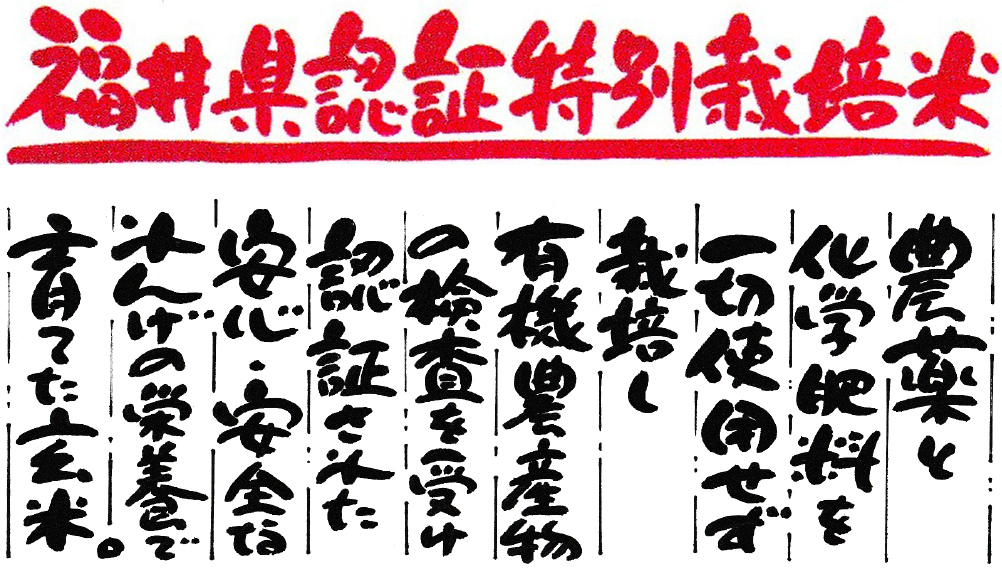 福井県認証特別栽培米
農薬と
化学肥料を
一切使用せず
栽培し
有機農産物
の検査を受け
認証された
安心・安全な
れんげの栄養で
育てた玄米。